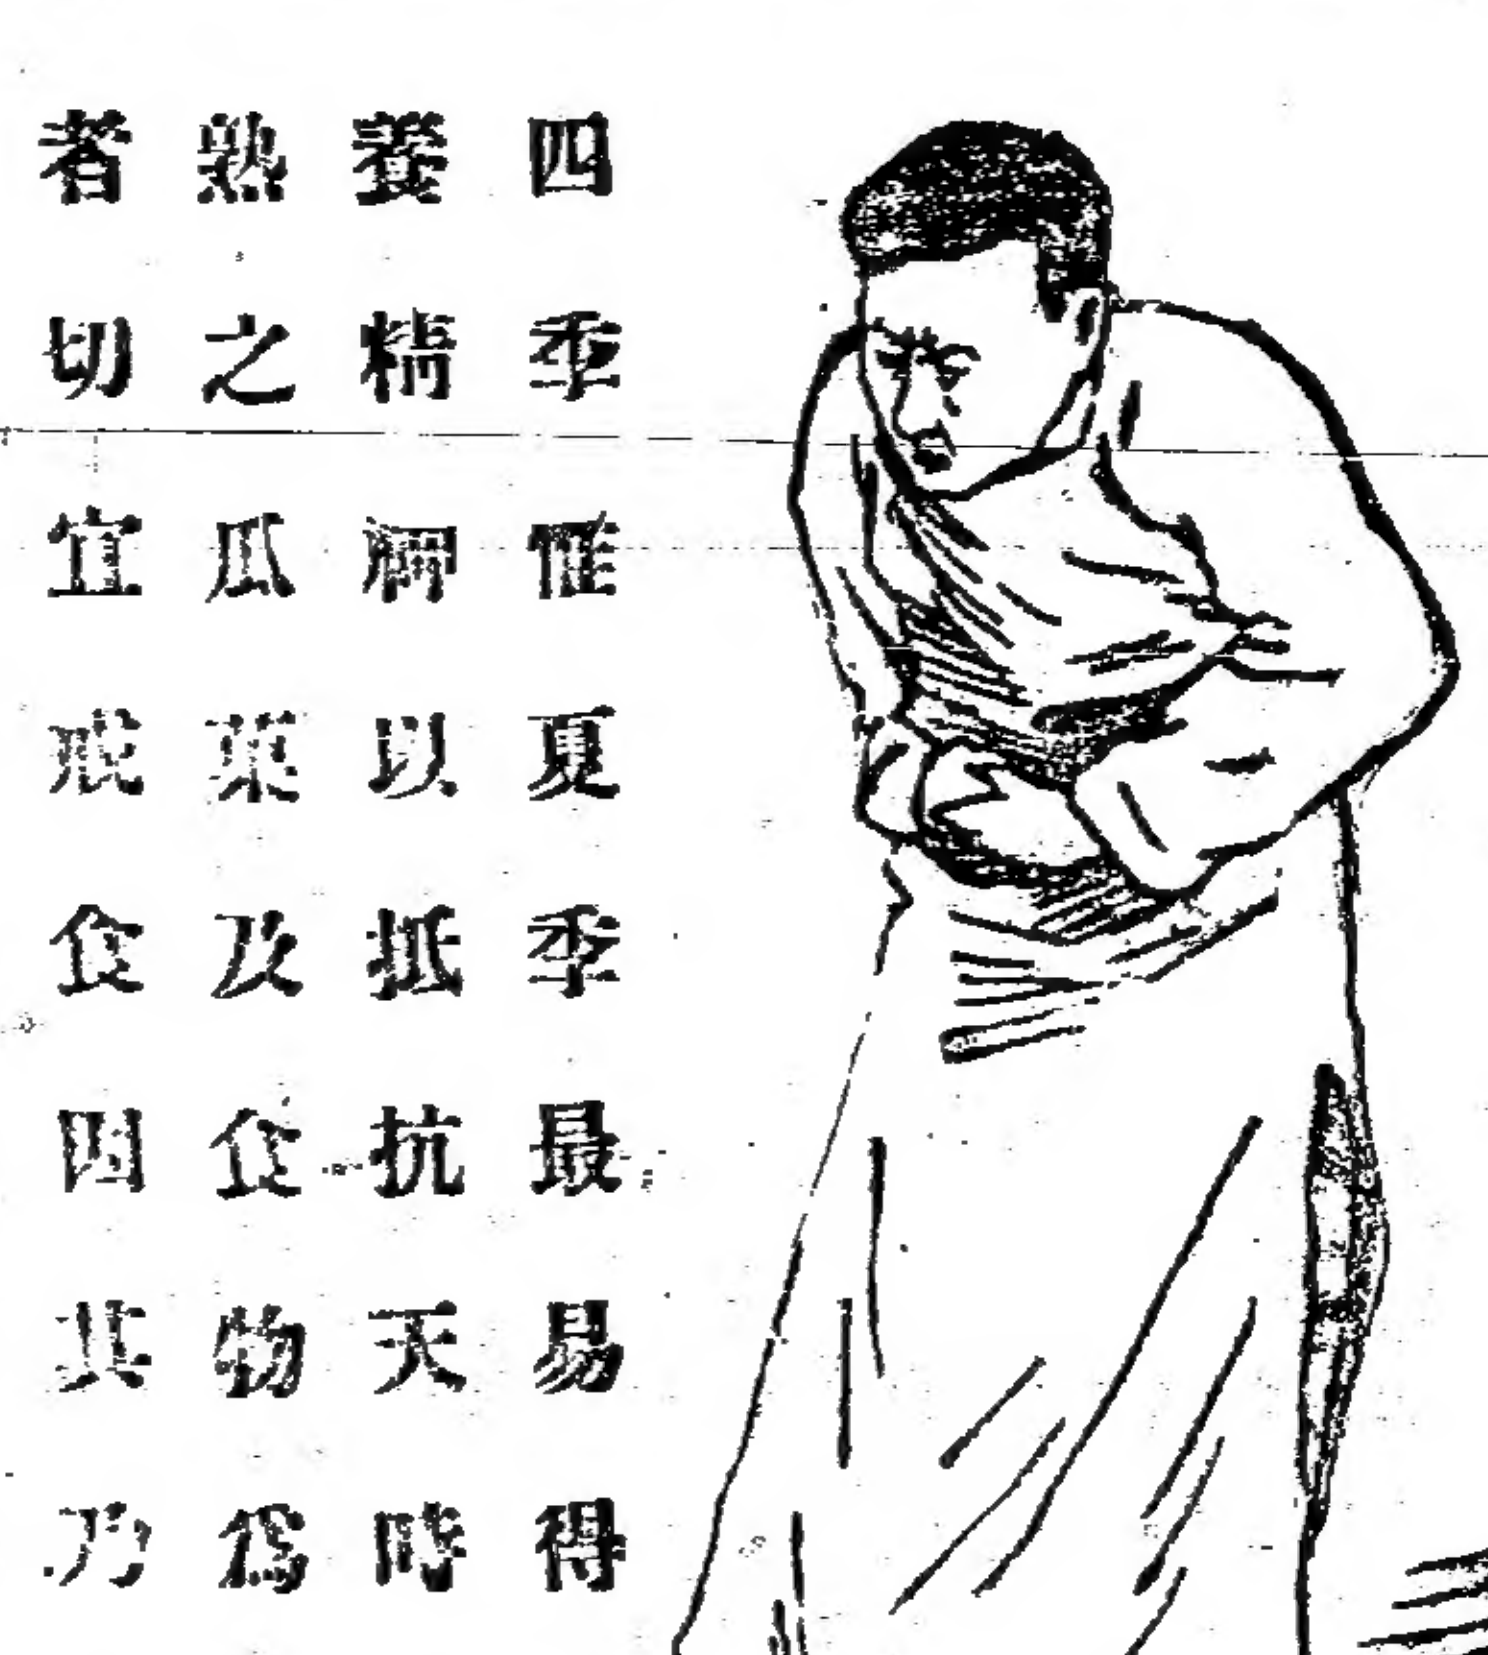 四季惟夏季最易得
養精以抵抗天時
熟之瓜菓及食物爲
者切宜戒食因其乃